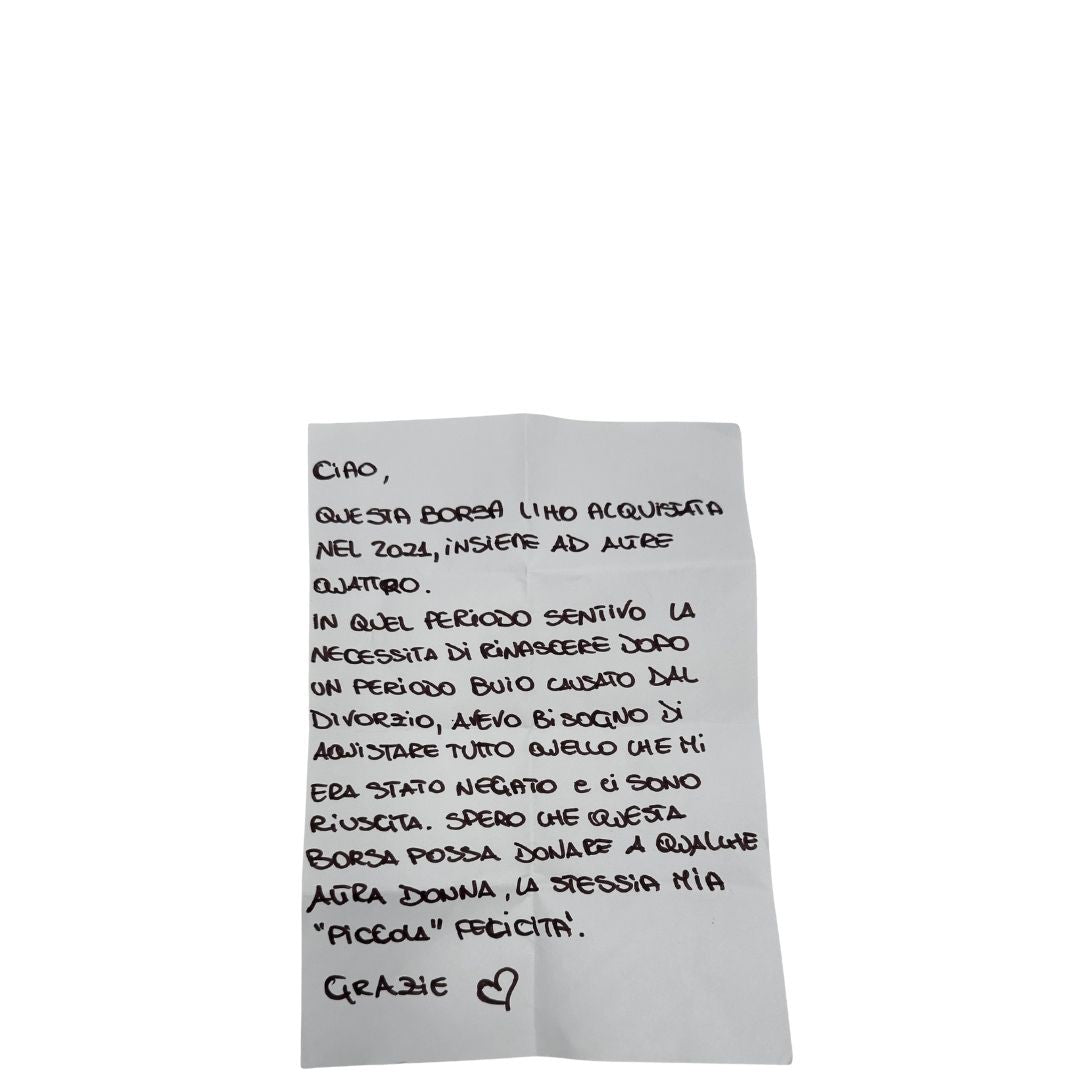 CIAO,
QUESTA BORSA L'HO ACQUISTATA
NEL 2021, INSIEME AD ALTRE
QUATTRO.
IN QUEL PERIODO SENTIVO LA
NECESSITA DI RINASCERE DOPO
UN PERIODO BUIO CAUSATO DAL
DIVORZIO, AVEVO BISOGNO DI
AQUISTARE TUTTO QUELLO CHE MI
ERA STATO NEGATO E CI SONO
RIUSCITA. SPERO CHE QUESTA
BORSA POSSA DONARE A QUALCHE
ALTRA DONNA, LA STESSIA MIA
"PICCOLA" FELICITA'.
GRAZIE ♡